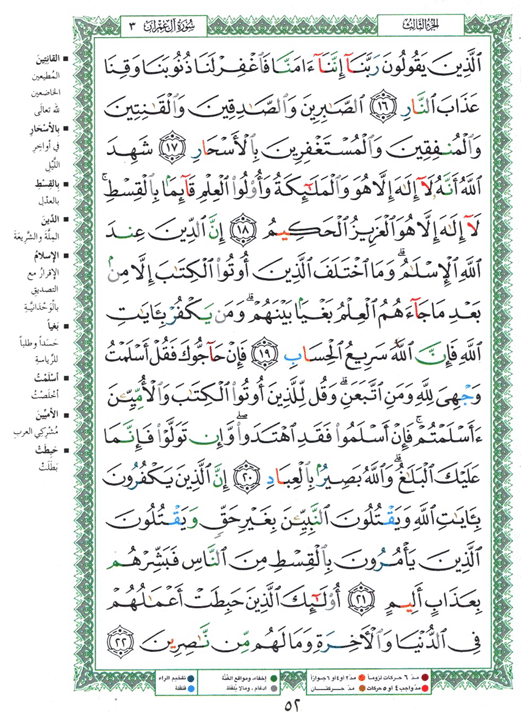 الجزء الثالث
سورة آل عمران ٣
ٱلَّذِينَ يَقُولُونَ رَبَّنَآ إِنَّنَآ ءَامَنَّا فَٱغْفِرْ لَنَا ذُنُوبَنَا وَقِنَا
عَذَابَ ٱلنَّارِ ١٦ ٱلصَّٰبِرِينَ وَٱلصَّٰدِقِينَ وَٱلْقَٰنِتِينَ
وَٱلْمُنفِقِينَ وَٱلْمُسْتَغْفِرِينَ بِٱلْأَسْحَارِ ١٧ شَهِدَ
ٱللَّهُ أَنَّهُۥ لَآ إِلَٰهَ إِلَّا هُوَ وَٱلْمَلَٰٓئِكَةُ وَأُو۟لُوا۟ ٱلْعِلْمِ قَآئِمًۢا بِٱلْقِسْطِ ۚ
لَآ إِلَٰهَ إِلَّا هُوَ ٱلْعَزِيزُ ٱلْحَكِيمُ ١٨ إِنَّ ٱلدِّينَ عِندَ
ٱللَّهِ ٱلْإِسْلَٰمُ ۗ وَمَا ٱخْتَلَفَ ٱلَّذِينَ أُوتُوا۟ ٱلْكِتَٰبَ إِلَّا مِنۢ
بَعْدِ مَا جَآءَهُمُ ٱلْعِلْمُ بَغْيًۢا بَيْنَهُمْ ۗ وَمَن يَكْفُرْ بِـَٔايَٰتِ
ٱللَّهِ فَإِنَّ ٱللَّهَ سَرِيعُ ٱلْحِسَابِ ١٩ فَإِنْ حَآجُّوكَ فَقُلْ أَسْلَمْتُ
وَجْهِىَ لِلَّهِ وَمَنِ ٱتَّبَعَنِ ۗ وَقُل لِّلَّذِينَ أُوتُوا۟ ٱلْكِتَٰبَ وَٱلْأُمِّيِّـۧنَ
ءَأَسْلَمْتُمْ ۚ فَإِنْ أَسْلَمُوا۟ فَقَدِ ٱهْتَدَوا۟ ۖ وَّإِن تَوَلَّوْا۟ فَإِنَّمَا
عَلَيْكَ ٱلْبَلَٰغُ ۗ وَٱللَّهُ بَصِيرٌۢ بِٱلْعِبَادِ ٢٠ إِنَّ ٱلَّذِينَ يَكْفُرُونَ
بِـَٔايَٰتِ ٱللَّهِ وَيَقْتُلُونَ ٱلنَّبِيِّـۧنَ بِغَيْرِ حَقٍّ وَيَقْتُلُونَ
ٱلَّذِينَ يَأْمُرُونَ بِٱلْقِسْطِ مِنَ ٱلنَّاسِ فَبَشِّرْهُم
بِعَذَابٍ أَلِيمٍ ٢١ أُو۟لَٰٓئِكَ ٱلَّذِينَ حَبِطَتْ أَعْمَٰلُهُمْ
فِى ٱلدُّنْيَا وَٱلْءَاخِرَةِ وَمَا لَهُم مِّن نَّٰصِرِينَ ٢٢
القانتين
المطيعين
الخاضعين
لله تعالى
بالأسحار
في أواخر
الليل
بالقسط
بالعدل
الدين
الملة والشريعة
الإسلام
الإقرار مع
التصديق
بالوحدانية
بغيا
حسداً وطلباً
للرياسة
أسلمت
أخلصت
الأميين
مشركي العرب
حبطت
بطلت
مد ٦ حركات لزوماً
مد ٢ أو ٤ أو ٦ جوازاً
مد واجب ٤ أو ٥ حركات
مد حركتان
إخفاء، ومواقع الغنة
ادغام، وما لا يلفظ
تفخيم الراء
قلقلة
٥٢